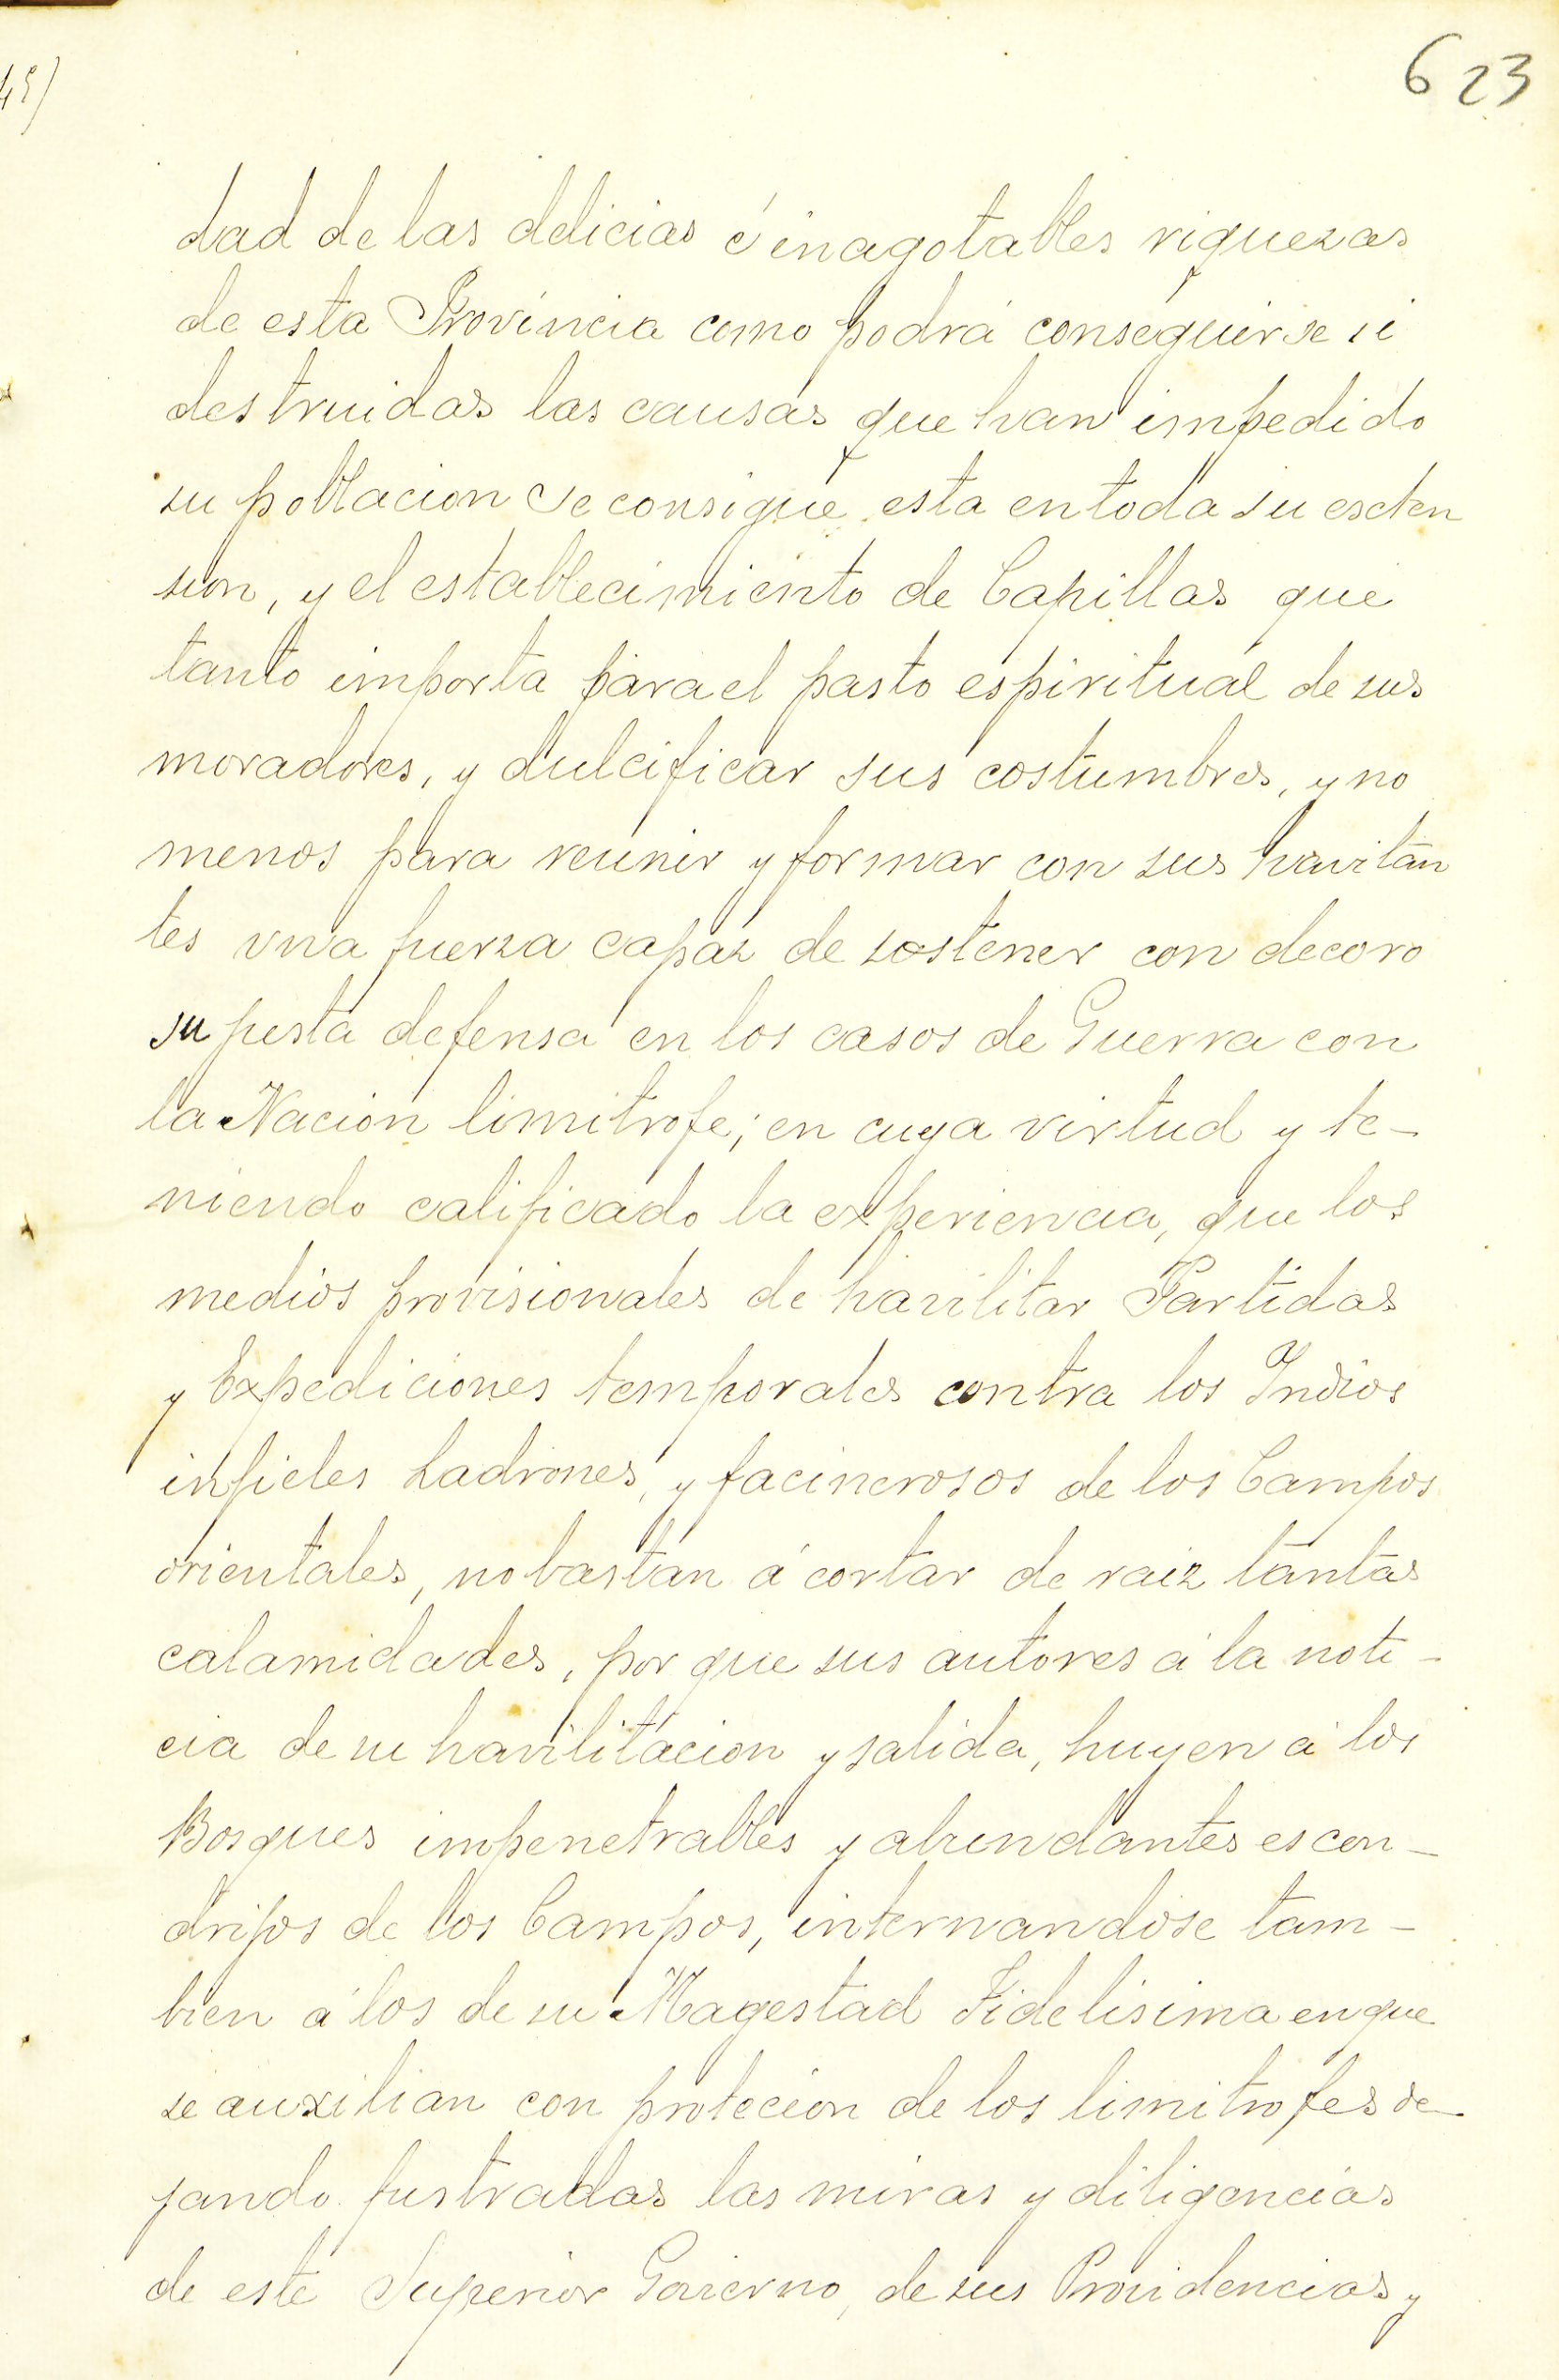 623
45)
dad de las delicias é inagotables riquezas
de esta Provincia como podrá conseguirse si
destruidas las causas que han impedido
su poblacion se consigue esta en toda su escten
sion, y el establecimiento de Capillas que
tanto importa para el pasto espiritual de sus
moradores, y dulcificar sus costumbres, y no
menos para reunir y formar con sus havitan
tes una fuerza capaz de sostener con decoro
su justa defensa en los casos de Guerra con
la Nacion limitrofe; en cuya virtud y te-
niendo calificado la experiencia, que los
medios provisionales de havilitar Partidas
y Expediciones temporales contra los Indios
infieles Ladrones, y facinerosos de los Campos
orientales, no bastan á cortar de raiz tantas
calamidades, por que sus autores á la noti-
cia de su havilitacion y salida, huyen á los
Bosques impenetrables y abundantes escon-
drijos de los Campos, internandose tam-
bien á los de su Magestad Fidelisima en que
se auxilian con protecion de los limitrofes de-
jando fustradas las miras y diligencias
de este Superior Govierno, de sus Providencias y